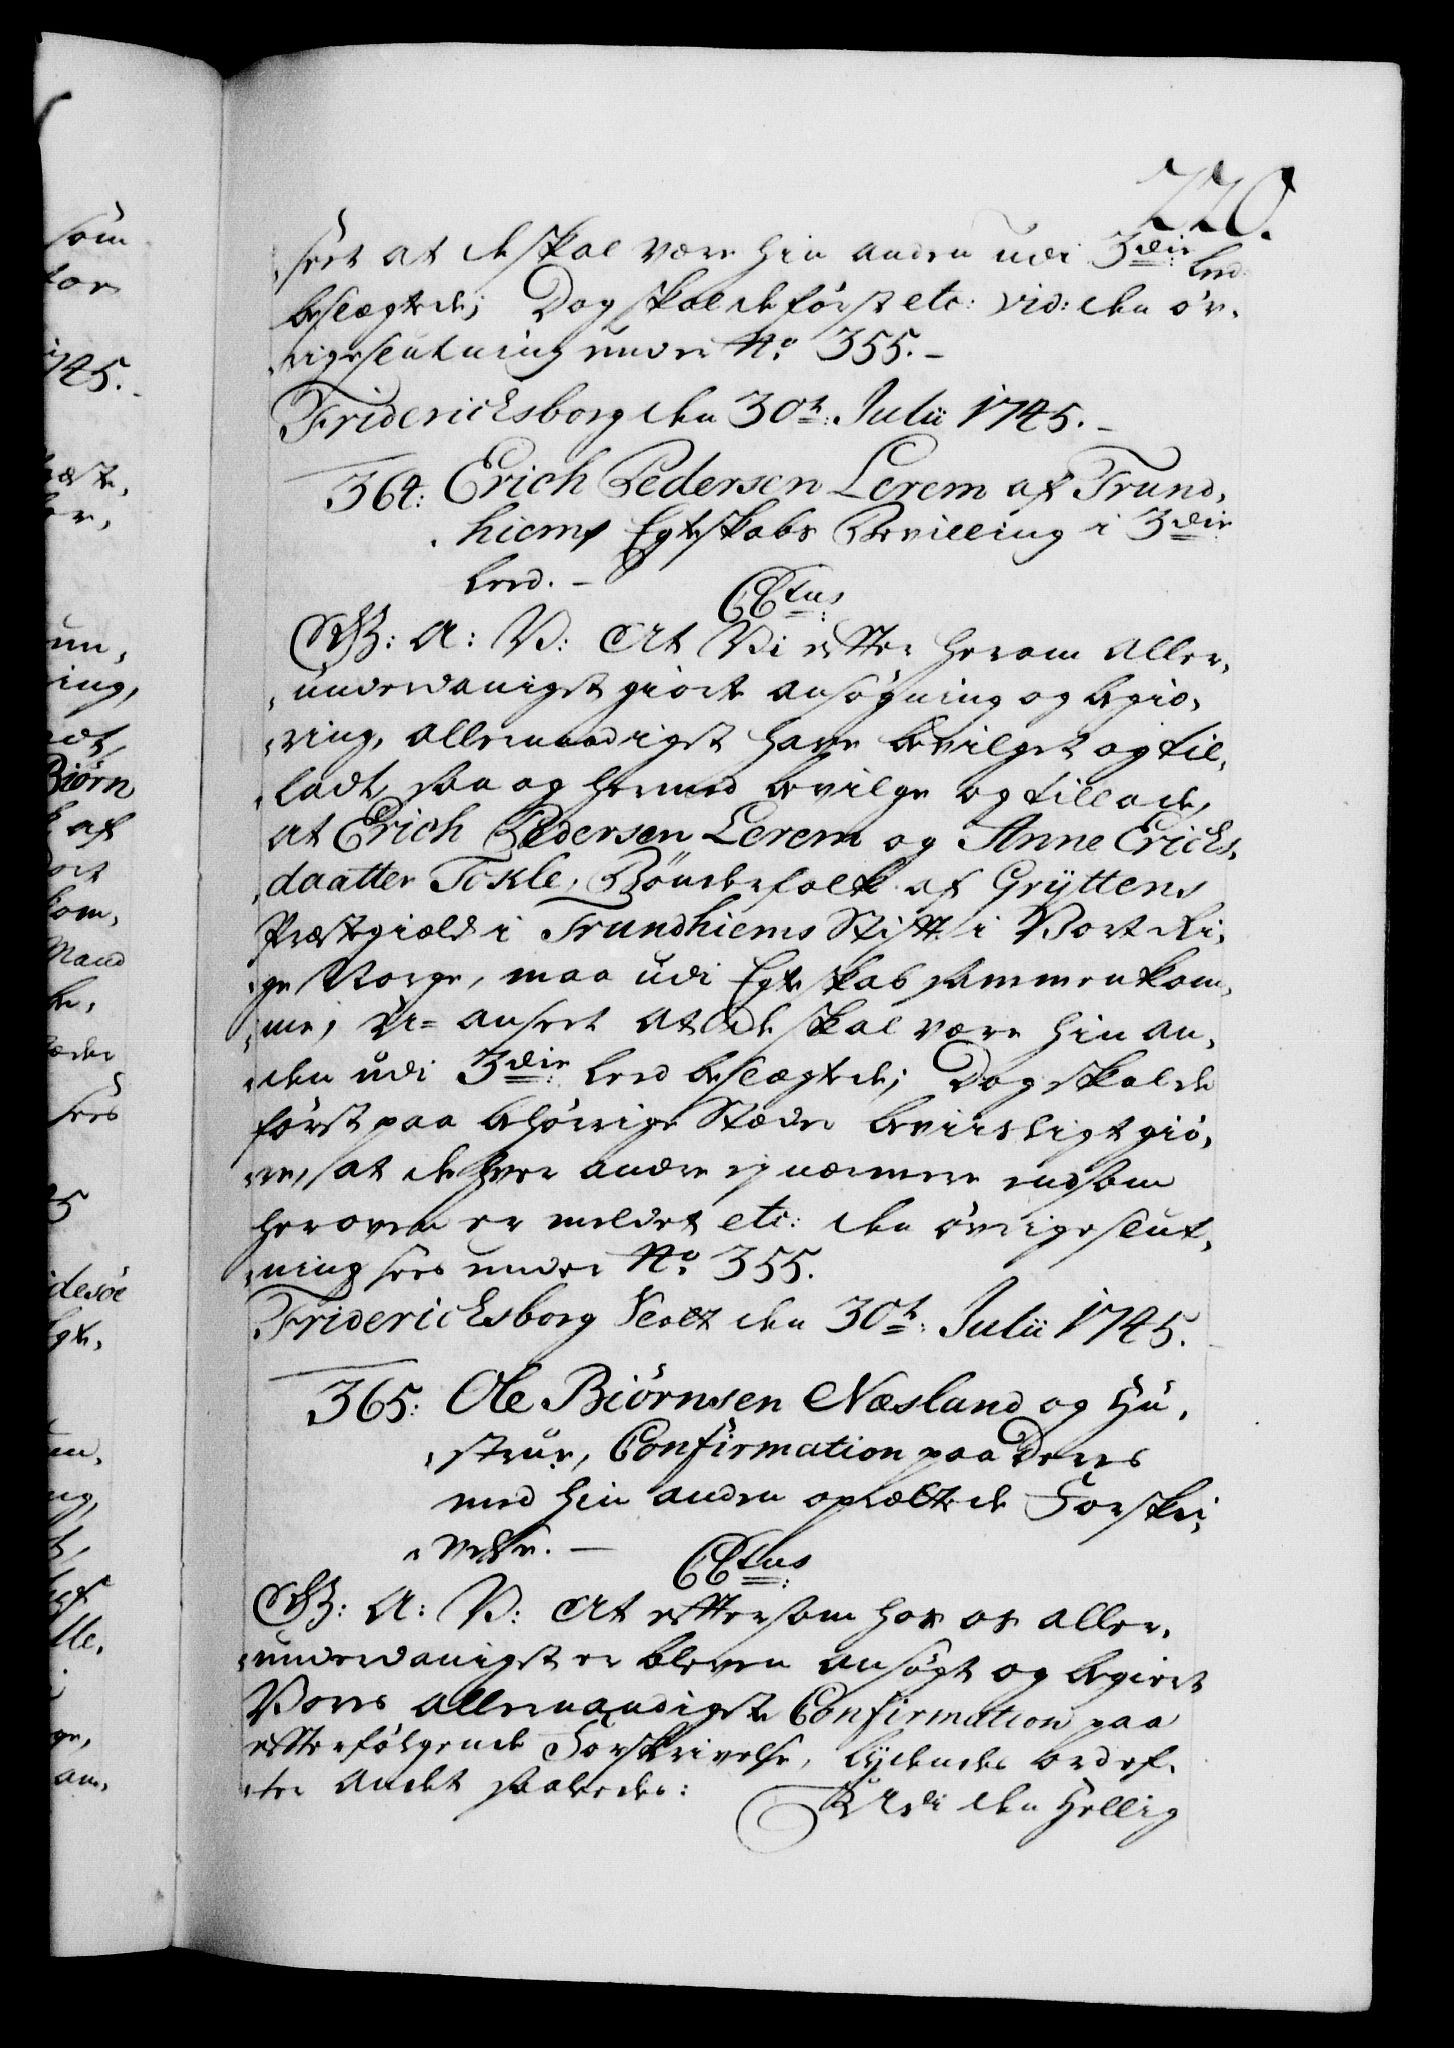 220.
„seet at de skal være hin anden udi 3die Leed
beslægtede; Dog skal de først etc: vid: den öv„
„rige slutning under No 355. –
Friderichsborg den 30te: Julii 1745. –
364: Erich Pedersen Lerem af Trund„
„hiems Egteskabs Bevilling i 3die
Leed. –
CCtus
G: A: V: At Vi efter herom aller„
„underdanigst giorte ansögning og begiæ„
„ring, allernaadigst have bevilget og til„
„ladt, saa og hermed bevilge og tillade,
at Erich Pedersen Lerem og Anne Erichs„
„daatter Tokle, Bönderfolk af Grÿttens
Præstegield i Trundhiems Stift i Vort Ri„
„ge Norge, maa udi Egteskab sammenkom„
„me, U=anseet at de skal være hin an„
„den udi 3die Leed beslægtede; Dog skal de
först paa behörrige Stæder bevisligt giö„
„re, at de hver andre ej nærmere end som
heroven er meldet etc: den övrige slut„
„ning sees under No 355.
Friderichsborg Slott den 30te: Julii 1745.
365: Ole Biörnsen Næsland og Hu„
„strue, Confirmation paa Deres
med hin anden oprættede Forskri„
„velse. –
CCtus
G: A: V: At eftersom hos os aller„
„underdanigst er bleven ansögt og begiert
Vores allernaadigste Confirmation paa
efterfölgende Forskrivelse, lÿdendes ord ef„
„ter andet saaledes:
Udi den Hellig